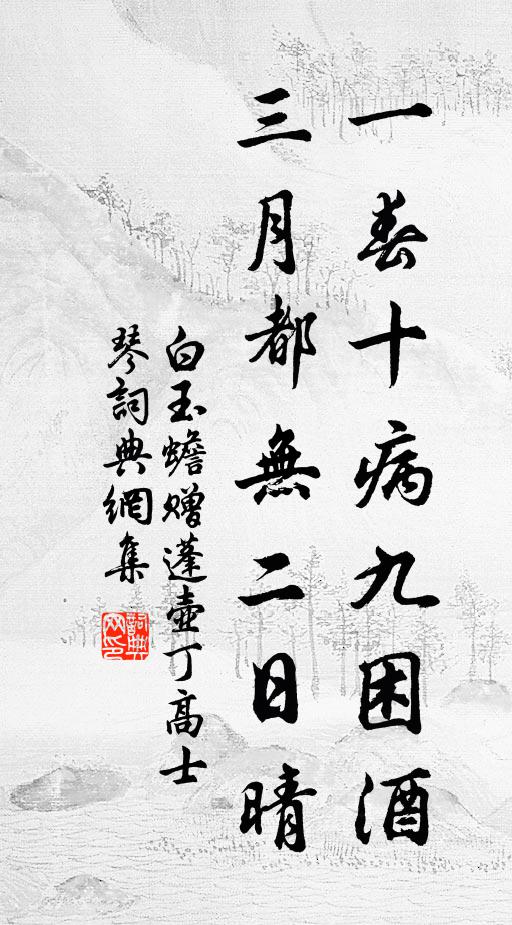 一春十病九困酒
三月都無二日晴
白玉蟾赠蓬壺丁高士
琴詞典網集
詞典网印